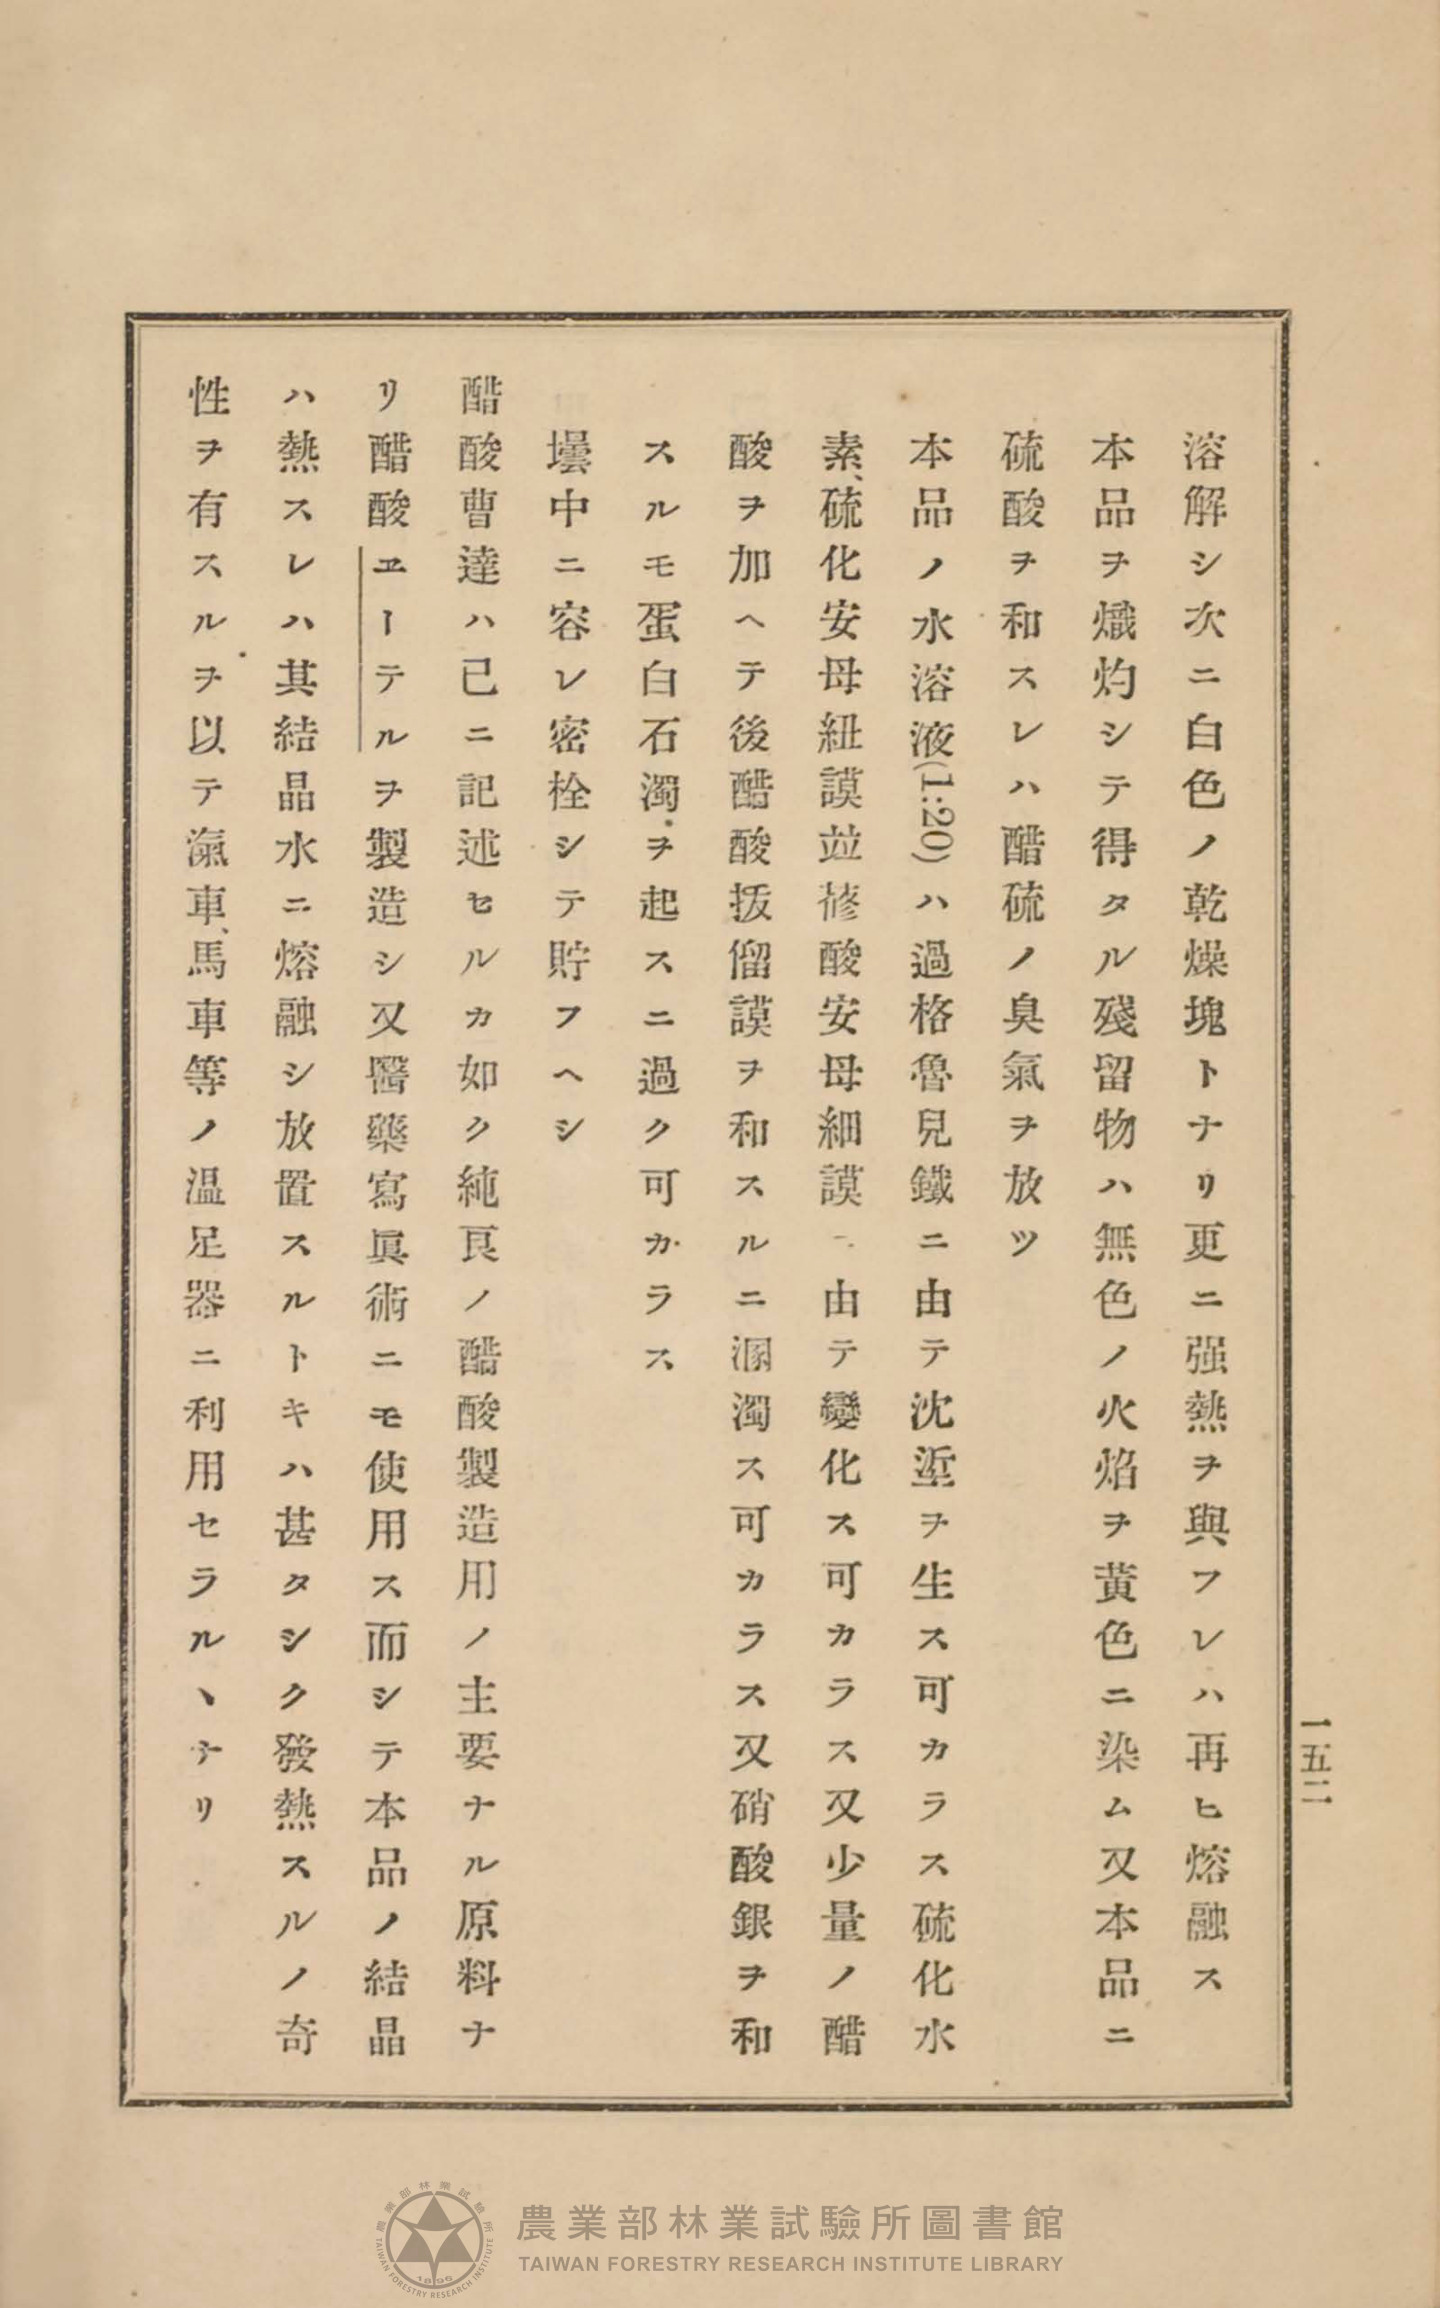 一五二
溶解シ次ニ白色ノ乾燥塊トナリ更ニ强熱ヲ與フレハ再ヒ熔融ス
本品ヲ熾灼シテ得タル殘留物ハ無色ノ火焰ヲ黃色ニ染ム又本品ニ
硫酸ヲ和スレハ醋硫ノ臭氣ヲ放ツ
本品ノ水溶液(1:20)ハ過格魯兒鐵ニ由テ沈垽ヲ生ス可カラス硫化水
素、硫化安母紐謨竝蓚酸安母細謨ニ由テ變化ス可カラス又少量ノ醋
酸ヲ加ヘテ後醋酸拔僂謨ヲ和スルニ溷濁ス可カラス又硝酸銀ヲ和
スルモ蛋白石濁ヲ起スニ過ク可カラス
壜中ニ容レ密栓シテ貯フヘシ
醋酸曹達ハ已ニ記述セルカ如ク純良ノ醋酸製造用ノ主要ナル原料ナ
リ醋酸ヱーテルヲ製造シ又醫藥寫眞術ニモ使用ス而シテ本品ノ結晶
ハ熱スレハ其結晶水ニ熔融シ放置スルトキハ甚タシク發熱スルノ奇
性ヲ有スルヲ以テ滊車、馬車等ノ溫足器ニ利用セラルヽナリ
農業部林業試驗所圖書館
TAIWAN FORESTRY RESEARCH INSTITUTE LIBRARY
農業部林業試驗所
TAIWAN FORESTRY RESEARCH INSTITUTE
1896